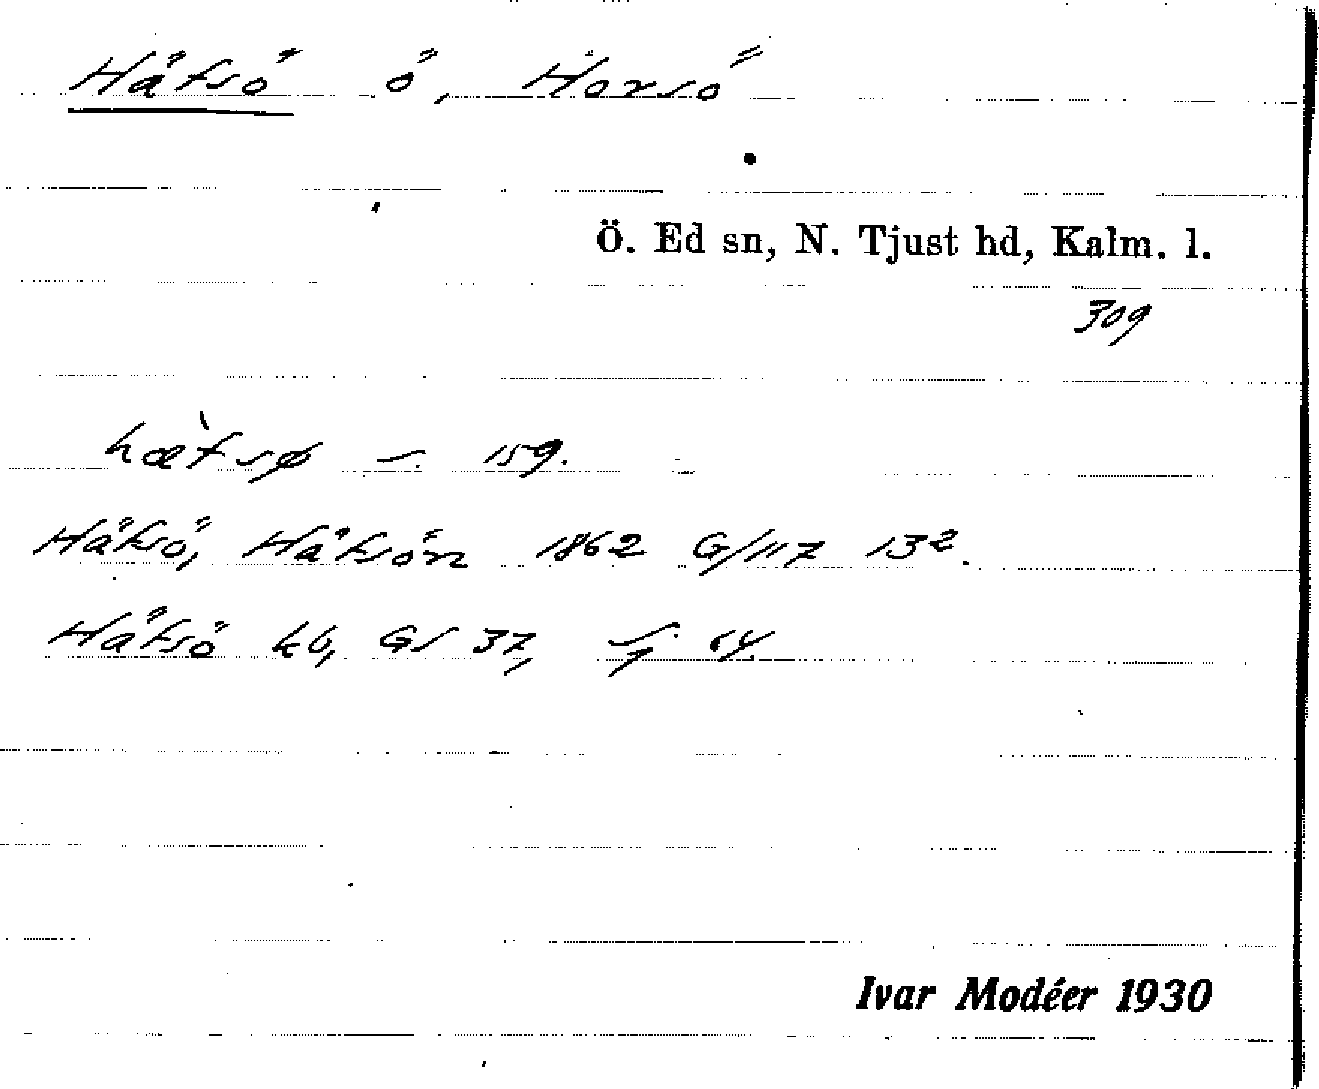 Håtsö ö, Horsö
Ö. Ed sn, N. Tjust hd, Kalm. l.
309
hæ̀tsø – 159.
Håtsö, Håtsön 1862 G/117 132.
Håtsö kb, GS 37, 64.
Ivar Modéer 1930